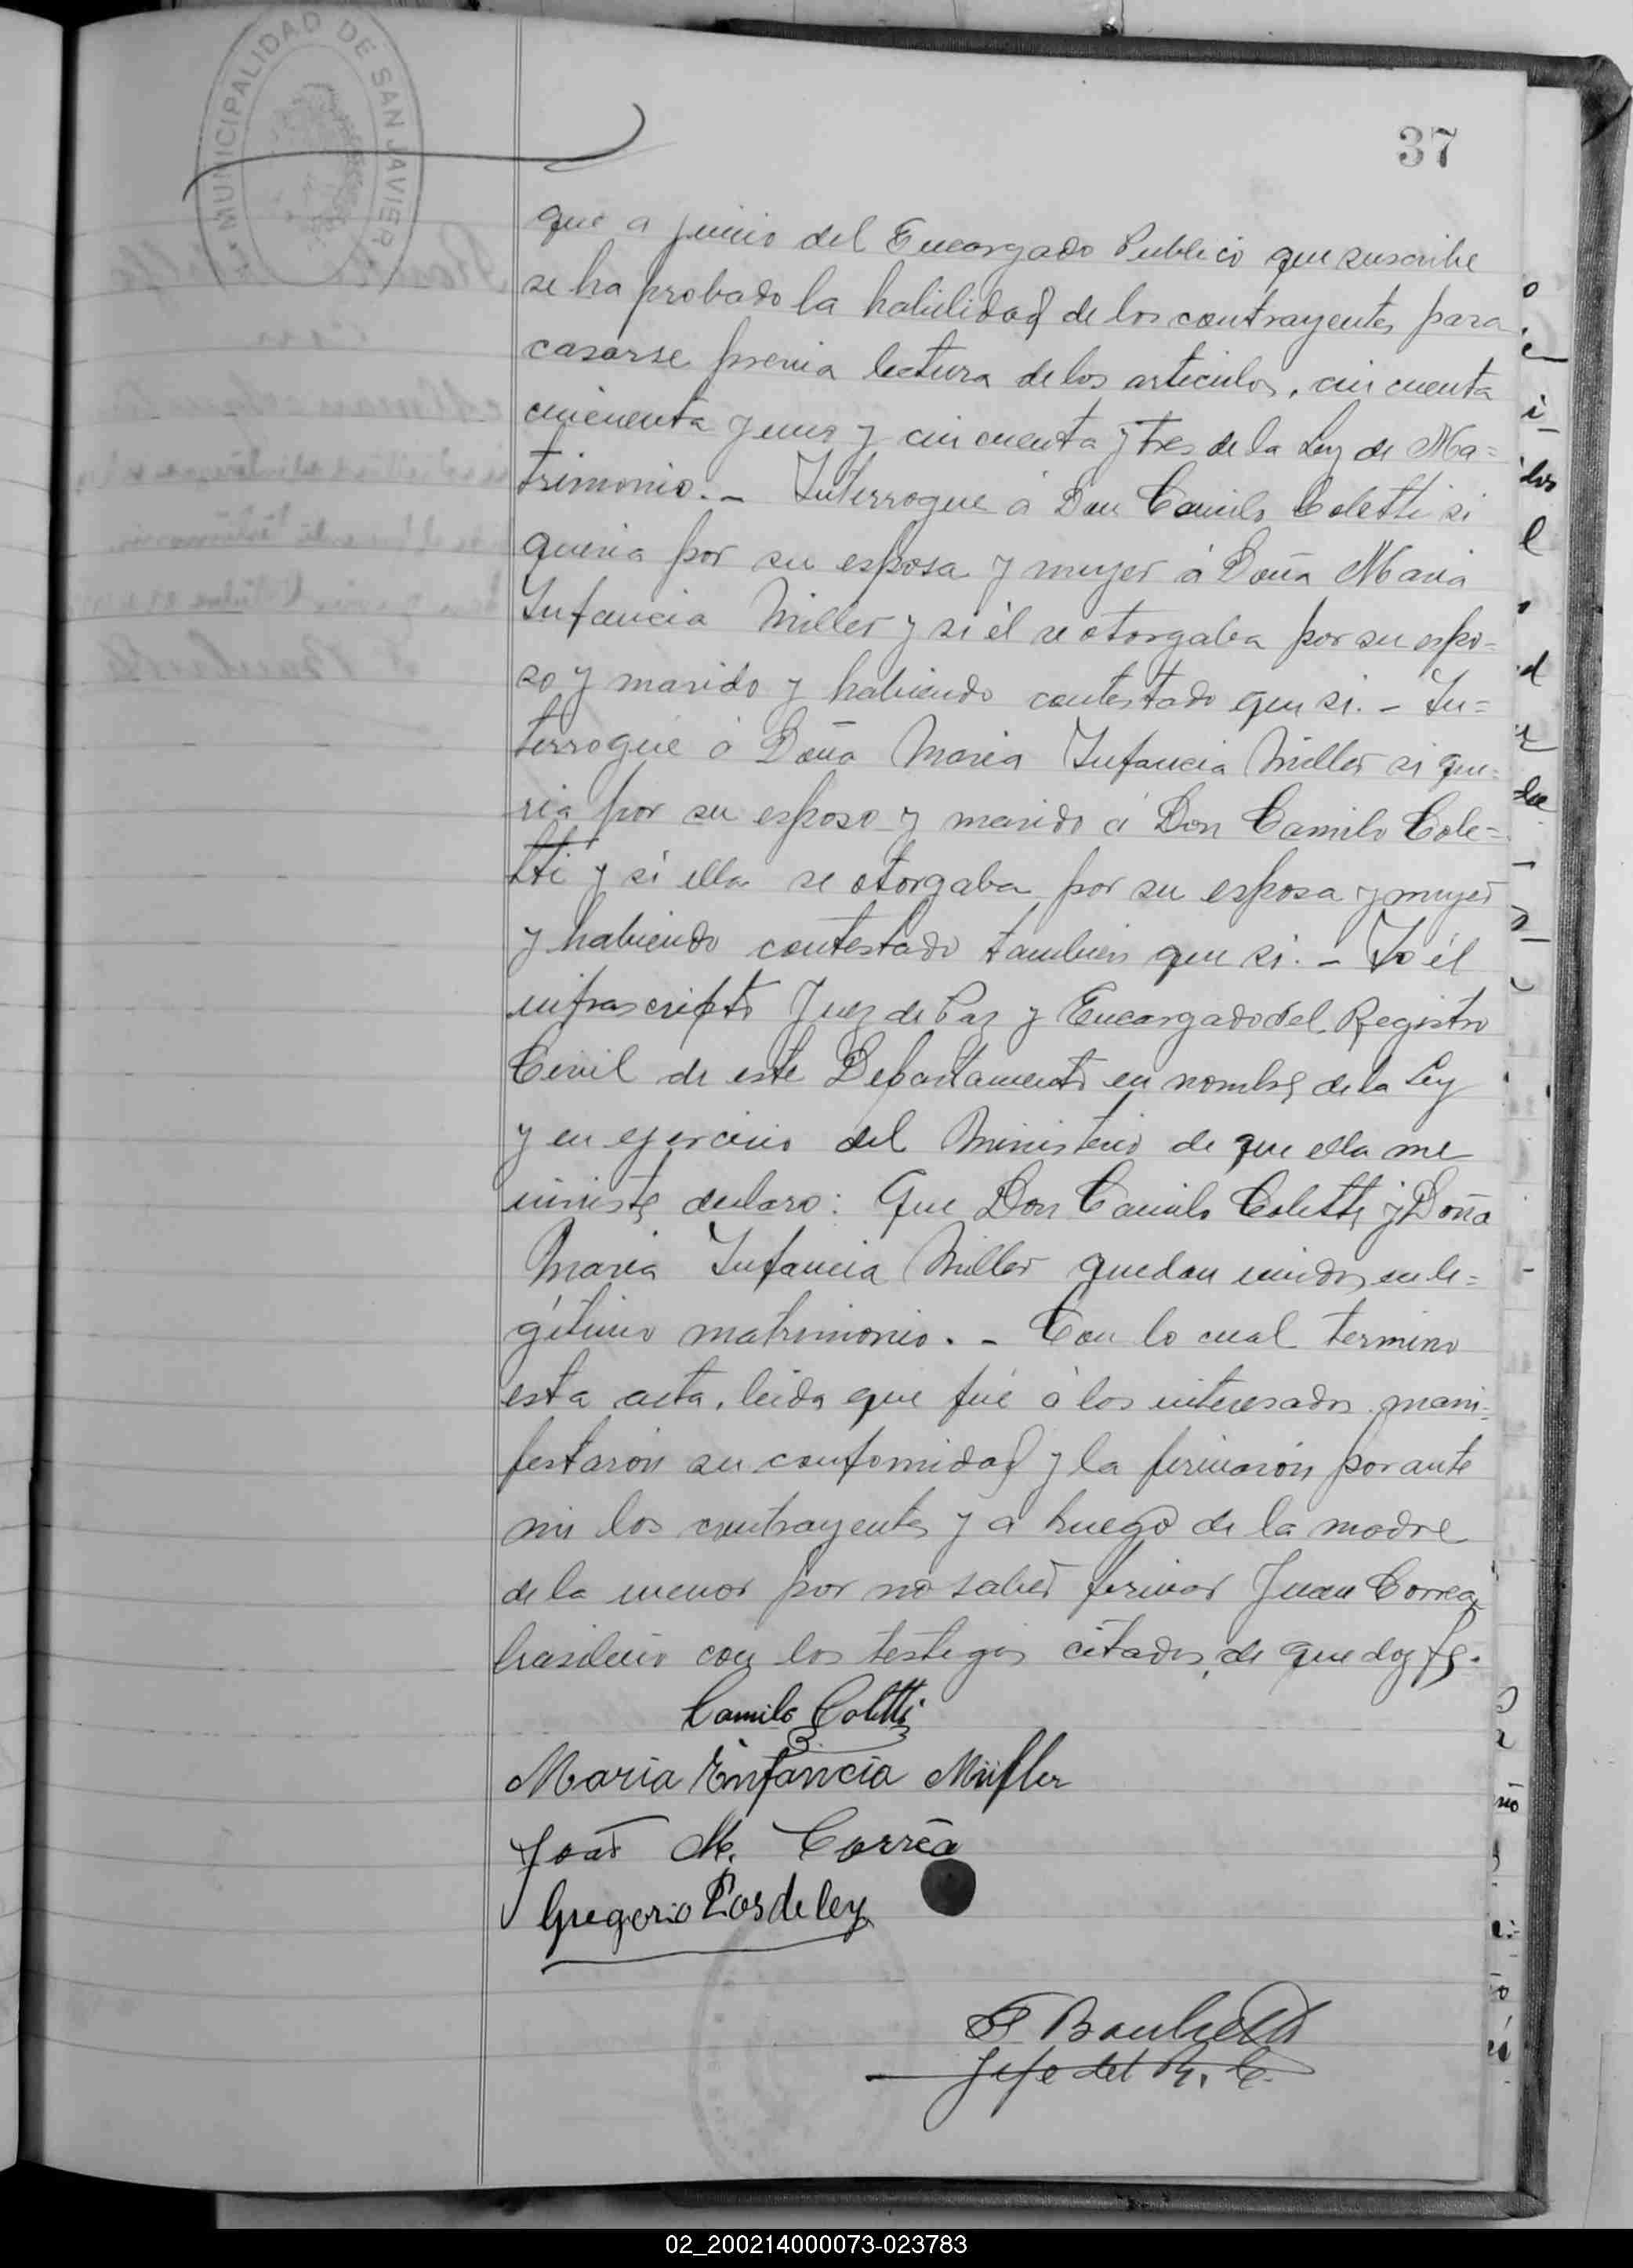 MUNICIPALIDAD DE SAN JAVIER
37
que a juicio del Encargado Publico que suscribe
se ha probado la habilidad de los contrayentes para
casarse previa lectura de los articulos, cincuenta
cincuenta y uno y cincuenta y tres de la Ley de Ma=
trimonio. - Interrogue á Don Camilo Coletti si
queria por su esposa y mujer á Doña Maria
Infancia Miller y si él se otorgaba por su espo=
so y marido y habiendo contestado que si. - In=
terrogué á Doña Maria Infancia Miller si que=
ria por su esposo y marido á Don Camilo Cole=
tti y si ella se otorgaba por su esposa y mujer
y habiendo contestado tambien que si. - Yo él
infrascripto Juez de Paz y Encargado del Registro
Civil de este Departamento en nombre de la Ley
y en ejercicio del Ministerio de que ella me
inviste declaro: Que Don Camilo Coletti y Doña
Maria Infancia Miller quedan unidos en le=
gítimo matrimonio. - Con lo cual termino
esta acta, leida que fué á los interesados mani=
festarón su conformidad y la firmarón por ante
mi los contrayentes y a ruego de la madre
de la menor por no saber firmar Juan Correa
brasilero con los testigos citados, de que doy fe.
Camilo Coletti
Maria Enfancia Müller
João M. Corrêa
Gregorio
Jefe del R. C.
02_200214000073-023783